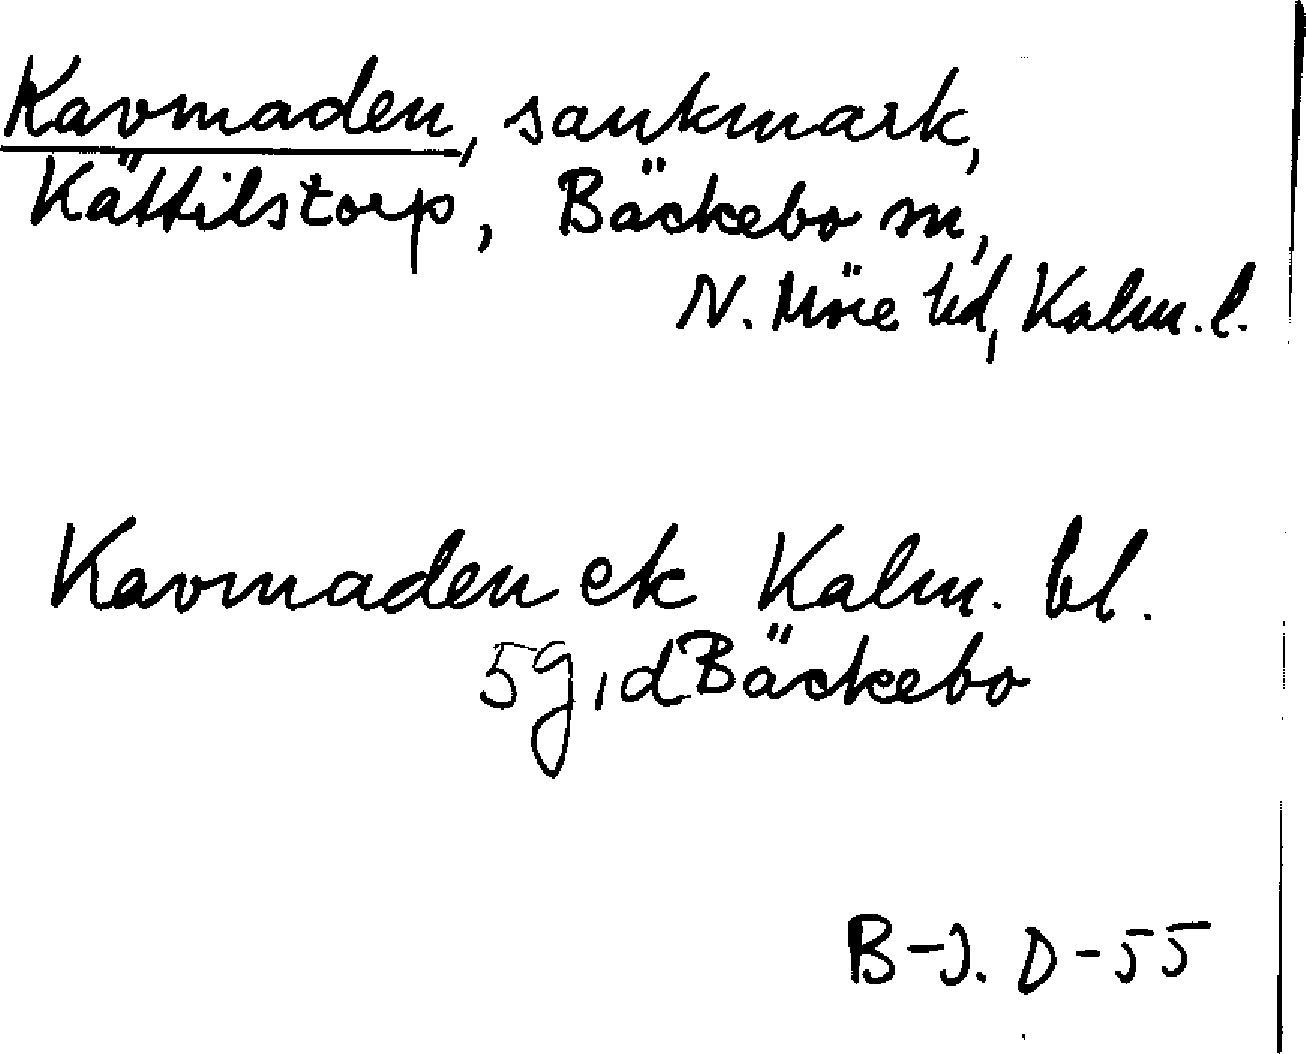 Kavmaden, sankmark,
Kättilstorp, Bäckebo sn,
N. Möre hd, Kalm. l.
Kavmaden ek Kalm. bl.
5g,d Bäckebo
B-J. D-55